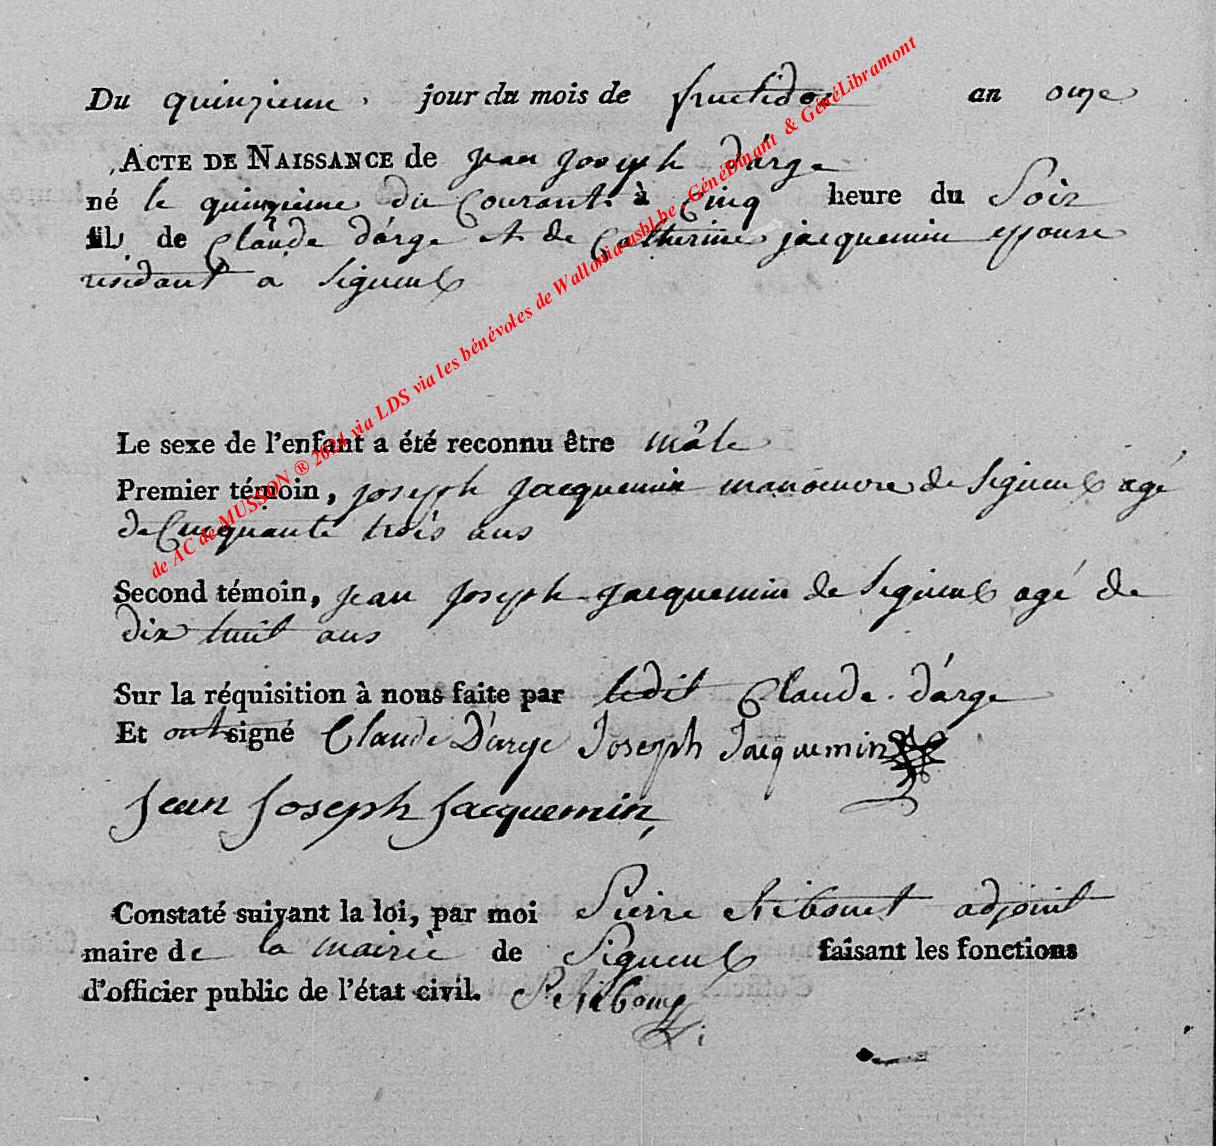 Du quinzieme jour du mois de fructidor an onze
ACTE DE NAISSANCE de jean joseph d'arge
né le quinzieme du Courant à Cinq heure du Soir
fils de Claude d'arge et de Catherine jacquemin epouse
residant a Signeulx
Le sexe de l'enfant a été reconnu être mâle
Premier témoin, joseph jacquemin manoeuvre de Signeulx agé
de Cinquante trois ans
Second témoin, jean joseph jacquemin de Signeulx agé de
dix huit ans
Sur la réquisition à nous faite par ledit Claude d'arge
Et ont signé Claude D'arge Joseph Jacquemin
Jean Joseph Jacquemin
Constaté suivant la loi, par moi Pierre adjoint
maire de la mairie de Signeulx faisant les fonctions
d'officier public de l'état civil.
de AC de MUSSON ® 2021 via LDS via les bénévoles de Wallonia-asbl.be, GénéDinant & GénéLibramont